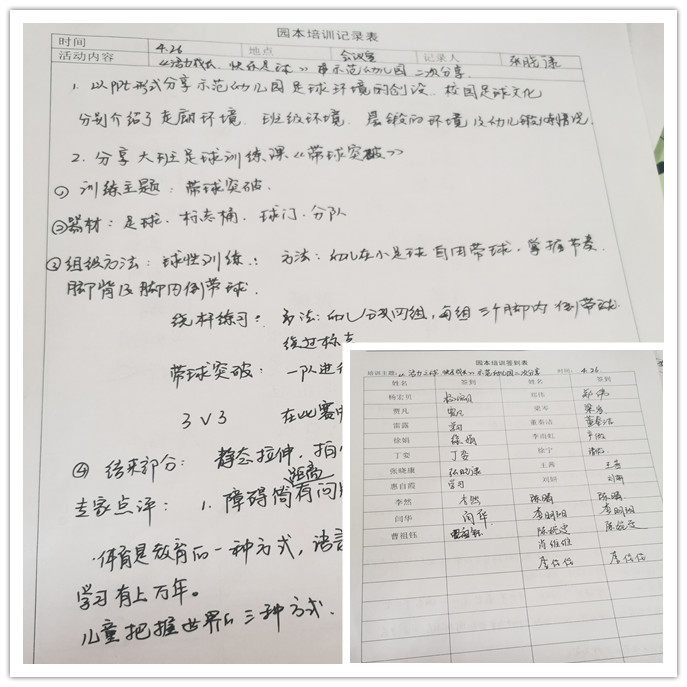 园本培训记录表
时间 4.26 地点 会议室 记录人 张晓康
活动内容 《活力成长、快乐足球》 示范幼儿园 二次分享
1. 以PPt形式分享示范幼儿园足球环境的创设、校园足球文化
分别介绍了走廊环境、班级环境、晨锻的环境及幼儿锻炼情况.
2. 分享大班足球训练课《带球突破》
① 训练主题：带球突破.
②器材：足球、标志桶、球门、分队
③组织方法：球性训练： 方法：幼儿在小足球自由带球，掌握节奏
脚背及脚内侧带球.
绕杆练习： 方法：幼儿分为四组，每组三个脚内侧带球
绕过标志
带球突破： 一队进
3V3 在比赛中
④ 结束部分： 静态拉伸、拍
距离
专家点评： 1. 障碍倚有问
体育是教育的一种方式，语言
学习有上万年。
儿童把握世界的三种方式.
园本培训签到表
培训主题: 示范幼儿园二次分享 时间: 4.26
姓名 签到 姓名 签到
杨宏贝 郑伟 郑伟
贾凡 贾凡 梁岑 梁岑
雷露 雷露 董春洁 董春洁
徐娟 徐娟 李雨虹
丁雯 丁雯 徐宁 徐宁
张晓康 张晓康 王茜 王茜
惠自霞 学习 刘妍 刘妍
李然 李然 陈晴 陈晴
闫华 闫华 李明阳 李明阳
曹祖钰 曹祖钰
肖维维